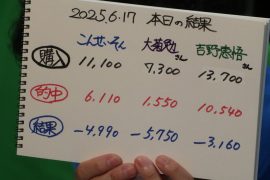 2025.6.17 本日の結果
こんせいそん 大菊勉さん 吉野憲悟さん
購入 11,100 7,300 13,700
的中 6,110 1,550 10,540
結果 -4,990 -5,750 -3,160